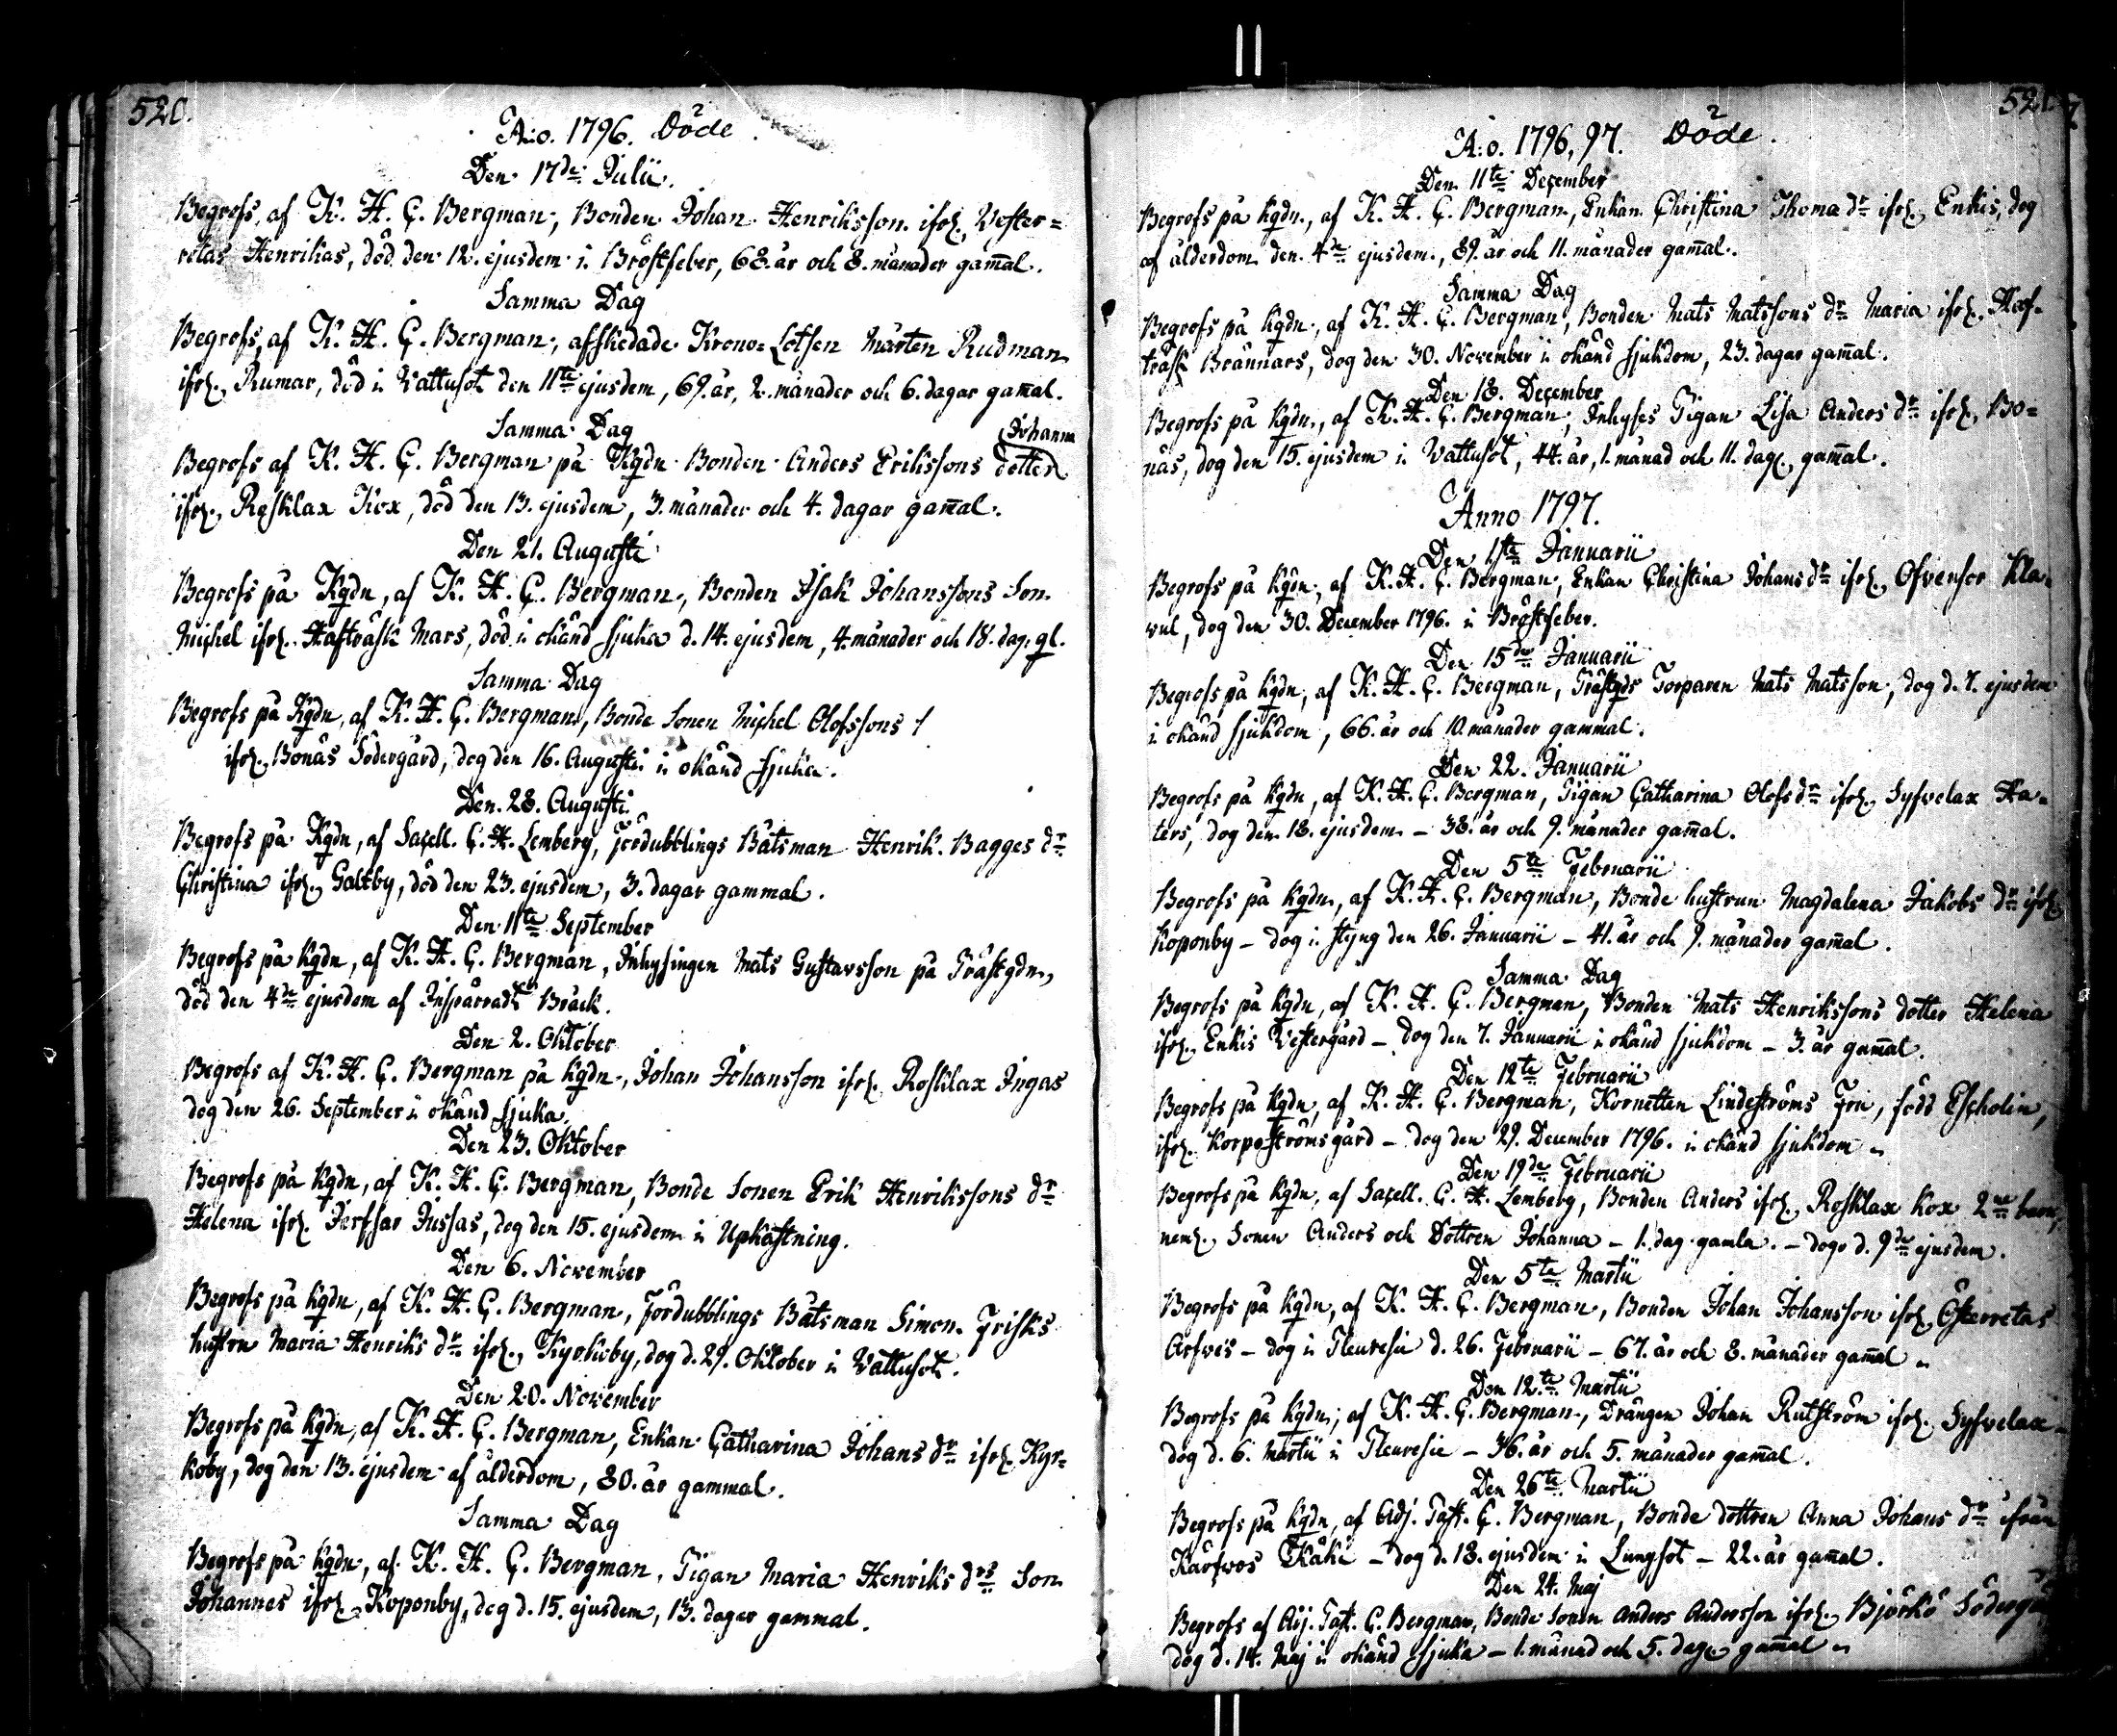 520.
A:o. 1796. Döde.
Den 17de Julii.
Begrofs, af K. H. C. Bergman, Bonden Johan Henriksson ifr. Vester=
retas Henrikas, död den 12. ejusdem i Bröstfeber, 68. år och 8. månader gam̄al.
Samma Dag
Begrofs, af K. H. C. Bergman, afskedade Krono=Lotsen Mårten Rudman
ifr. Rumar, död i Vattusot den 11te ejusdem, 69. år, 2. månader och 6. dagar gam̄al.
Samma Dag
Johanna
Begrofs af K. H. C. Bergman på Kgdn Bonden Anders Erikssons dotter
ifr. Rosklax Kox, död den 13. ejusdem, 3. månader och 4. dagar gam̄al.
Den 21. Augusti
Begrofs på Kgdn, af K. H. C. Bergman, Bonden Isak Johanssons Son
Michel ifr. Hafträsk Mars, död i okänd sjuka d. 14. ejusdem, 4. månader och 18. dag. gl.
Samma Dag
Begrofs på Kgdn, af K. H. C. Bergman, Bonde Sonen Michel Olofssons /
ifr. Bonäs Södergård, dog den 16. Augusti i okänd sjuka.
Den 28. Augusti
Begrofs på Kgdn, af Sacell. C. H. Lemberg, Fördubblings Båtsman Henrik Bagges dr
Christina ifr. Galtby, död den 23. ejusdem, 3. dagar gammal.
Den 11te September
Begrofs på Kgdn, af K. H. C. Bergman, Inhysingen Mats Gustavsson på Prästgdn,
död den 4de ejusdem af Inspärradt Bråck.
Den 2. Oktober
Begrofs af K. H. C. Bergman på Kgdn, Johan Johansson ifr. Rosklax Ingas
dog den 26. September i okänd sjuka.
Den 23. Oktober
Begrofs på Kgdn, af K. H. C. Bergman, Bonde Sonen Erik Henrikssons dr
Helena ifr. Jerfsar Jussas, dog den 15. ejusdem i Upkastning.
Den 6. November
Begrofs på Kgdn, af K. H. C. Bergman, Fördubblings Båtsman Simon Frisks
hustru Maria Henriks dr ifr. Kyrkoby, dog d. 29. Oktober i Vattusot.
Den 20. November
Begrofs på Kgdn, af K. H. C. Bergman, Enkan Catharina Johans dr ifr. Kyr=
koby, dog den 13. ejusdem af ålderdom, 80. år gammal.
Samma Dag
Begrofs på Kgdn, af K. H. C. Bergman, Pigan Maria Henriks drs Son
Johannes ifr. Koponby, dog d. 15. ejusdem, 13. dagar gammal.
A:o. 1796, 97. Döde.
Den 11te December
Begrofs på Kgdn, af K. H. C. Bergman, Enkan Christina Thoma dr ifr. Enkis, dog
af ålderdom den 4de ejusdem, 89. år och 11. månader gam̄al.
Samma Dag
Begrofs på Kgdn, af K. H. C. Bergman, Bonden Mats Matssons dr Maria ifr. Haf-
träsk Brännars, dog den 30. November i okänd sjukdom, 23. dagar gam̄al.
Den 18. December
Begrofs på Kgdn, af K. H. C. Bergman, Inhyses Pigan Lisa Anders dr ifr. Bo=
näs, dog den 15. ejusdem i Vattusot, 44. år, 1. månad och 11. dag. gam̄al.
Anno 1797.
Den 1ste Januarii
Begrofs på Kgdn, af K. H. C. Bergman, Enkan Christina Johans dr ifr. Ofvensor Kla-
vul, dog den 30. December 1796. i Bröstfeber.
Den 15de Januarii
Begrofs på Kgdn, af K. H. C. Bergman, Prästgds Torparen Mats Matsson, dog d. 7. ejusdem
i okänd sjukdom, 66. år och 10. månader gammal.
Den 22. Januarii
Begrofs på Kgdn, af K. H. C. Bergman, Pigan Catharina Olofs dr ifr. Syfvelax Ha-
ters, dog den 18. ejusdem - 38. år och 9. månader gam̄al.
Den 5te Februarii
Begrofs på Kgdn, af K. H. C. Bergman, Bonde hustrun Magdalena Jakobs dr ifr.
Koponby - dog i styng den 26. Januarii - 41. år och 9. månader gam̄al.
Samma Dag
Begrofs på Kgdn, af K. H. C. Bergman, Bonden Mats Henrikssons dotter Helena
ifr. Enkis Vestergård - dog den 7. Januarii i okänd sjukdom - 3. år gam̄al.
Den 12te Februarii
Begrofs på Kgdn, af K. H. C. Bergman, Kornetten Lindeströms Fru, född Escholin,
ifr. Korpoströmsgård - dog den 29. December 1796. i okänd sjukdom
Den 19de Februarii
Begrofs på Kgdn, af Sacell. C. H. Lemberg, Bonden Anders ifr. Rosklax Kox 2ne barn,
neml. Sonen Anders och Dottren Johanna - 1. dag gamla. - dogo d. 9de ejusdem.
Den 5te Martii
Begrofs på Kgdn, af K. H. C. Bergman, Bonden Johan Johansson ifr. Österretas
Arfves - dog i Pleuresie d. 26. Februarii - 67. år och 8. månader gam̄al
Den 12te Martii
Begrofs på Kgdn, af K. H. C. Bergman, Drängen Johan Rutström ifr. Syfvelax -
dog d. 6. Martii i Pleuresie - 36. år och 5. månader gam̄al.
Den 26te Martii
Begrofs på Kgdn, af Adj. Past. C. Bergman, Bonde dottren Anna Johans dr ifrån
Kaöfvos Kåki - dog d. 18. ejusdem i Lungsot - 22. år gam̄al.
Den 24. Maj
Begrofs af Adj. Past. C. Bergman, Bonde Sonen Anders Andersson ifr. Björkö
dog d. 14. Maj i okänd sjuka - 1. månad och 5. dagr gam̄al